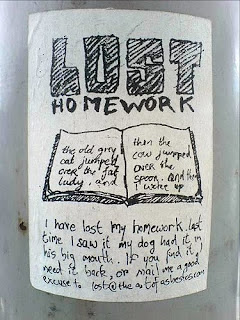 LOST
HOMEWORK
the old grey
cat jumped
over the fat
lady, and
then the
cow jumped
over the
spoon. and then
I woke up
I have lost my homework. last
time I saw it my dog had it in
his big mouth. If you find it, I
need it back, or mail me a good
excuse to lost@theartofasbestos.com